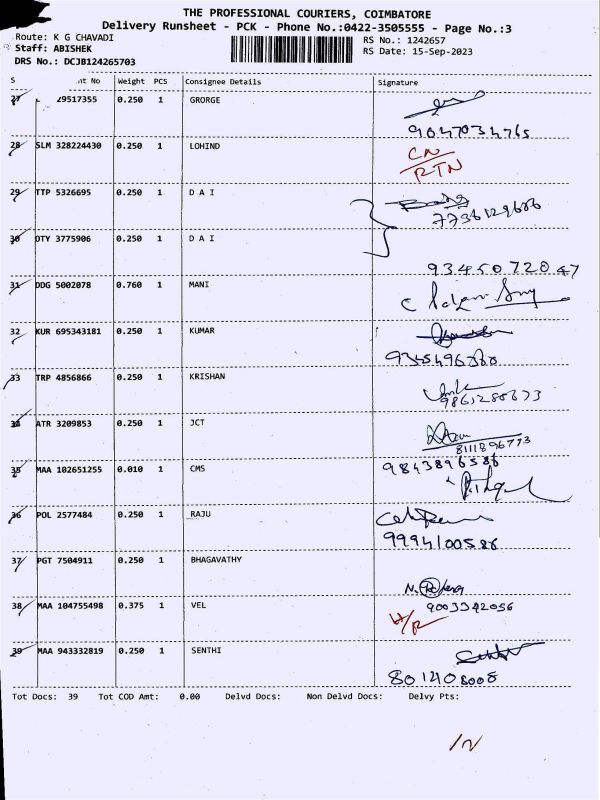 THE PROFESSIONAL COURIERS, COIMBATORE
Delivery Runsheet - PCK - Phone No.:0422-3505555 - Page No.:3
Route: K G CHAVADI
RS No.: 1242657
Staff: ABISHEK
RS Date: 15-Sep-2023
DRS No.: DCJB124265703
S nt No Weight PCS Consignee Details Signature
27 29517355 0.250 1 GRORGE
9047034765
28 SLM 328224430 0.250 1 LOHIND CN
RTN
29 TTP 5326695 0.250 1 D A I
7736129686
30 DTY 3775906 0.250 1 D A I
9345072047
31 DDG 5002078 0.760 1 MANI
32 KUR 695343181 0.250 1 KUMAR
33 TRP 4856866 0.250 1 KRISHAN
34 ATR 3209853 0.250 1 JCT
8111896773
35 MAA 102651255 0.010 1 CMS 9843896586
36 POL 2577484 0.250 1 RAJU
9994100586
37 PGT 7504911 0.250 1 BHAGAVATHY
38 MAA 104755498 0.375 1 VEL 9003342056
H/R
39 MAA 943332819 0.250 1 SENTHI
801408008
Tot Docs: 39 Tot COD Amt: 0.00 Delvd Docs: Non Delvd Docs: Delvy Pts: